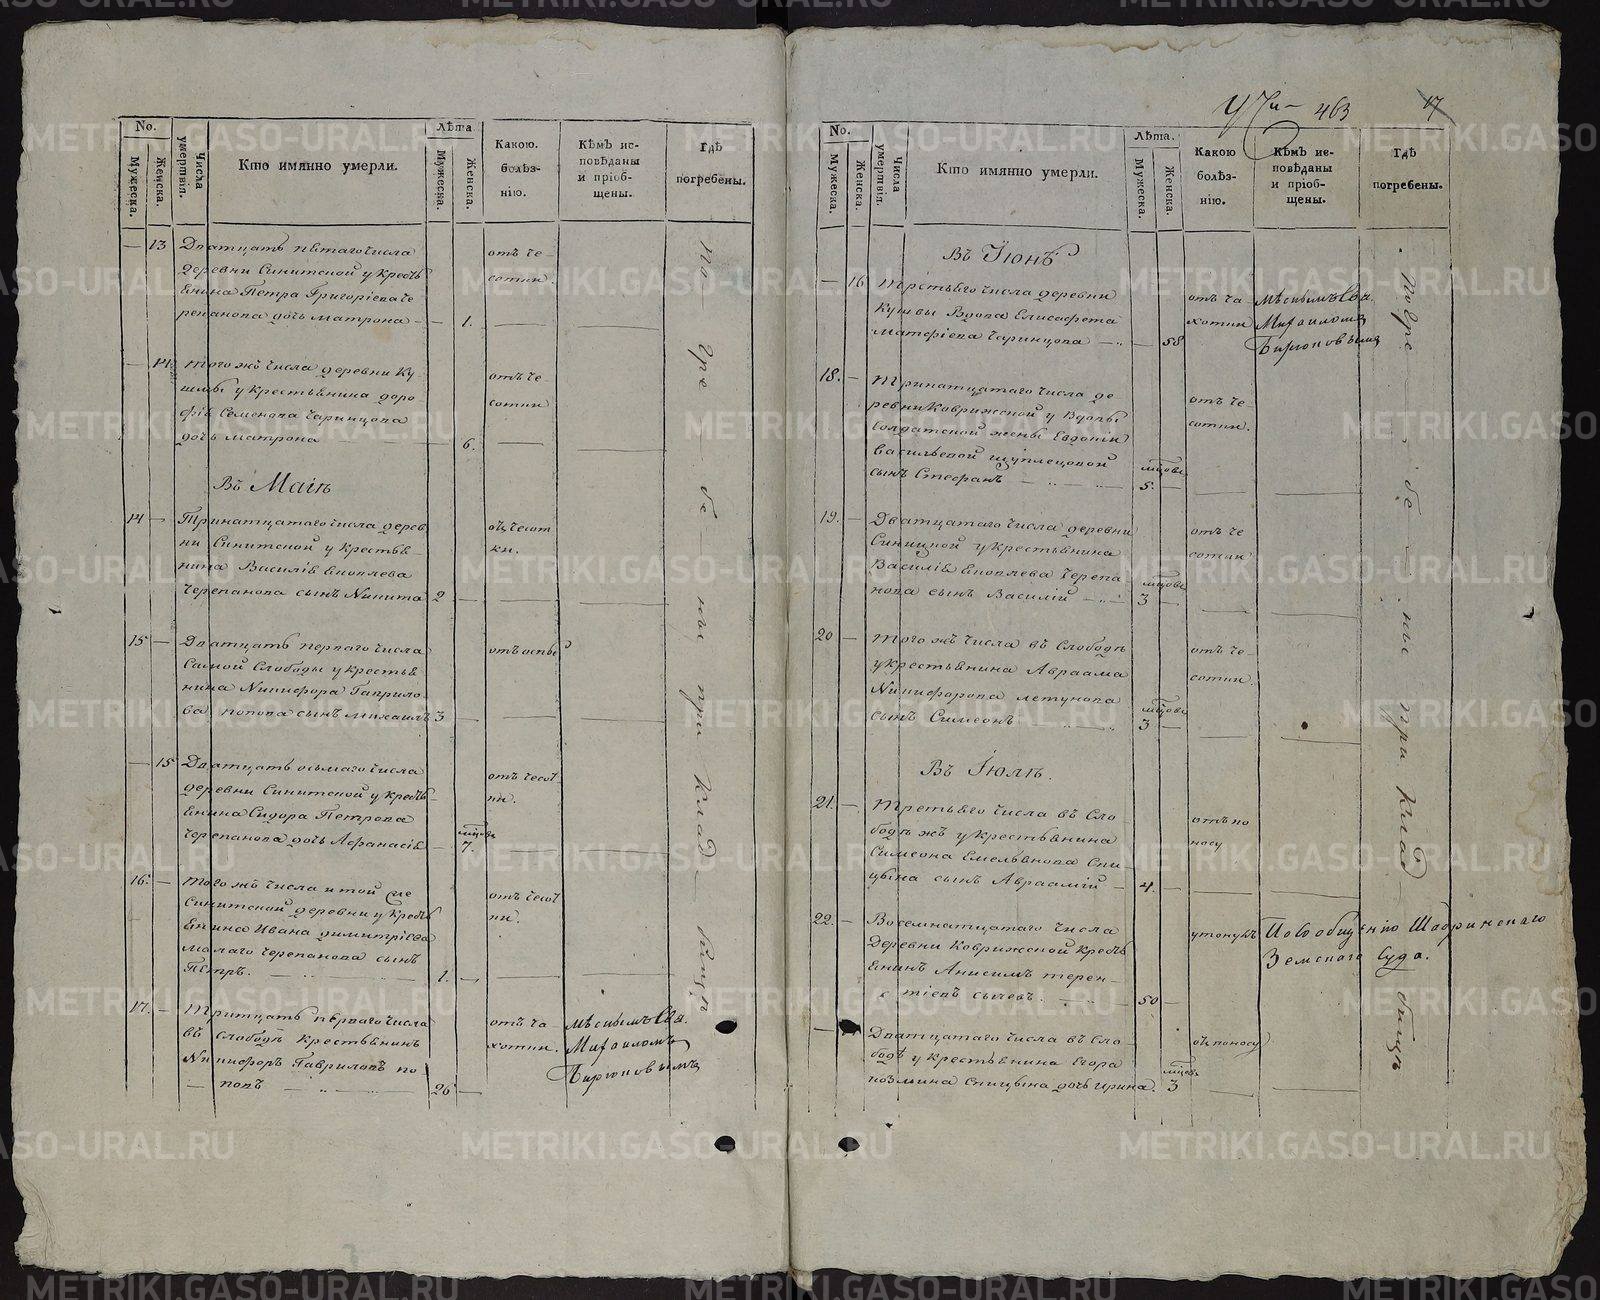 No.
Мужеска.
Женска.
Числа умертвія.
Кто имянно умерли.
Лѣта.
Мужеска.
Женска.
Какою. болѣз- нію.
Кѣмъ ис- повѣданы и пріоб- щены.
Гдѣ погребены.
— 13 Дватцать пятаго числа
деревни Синитской у кресть
янина Петра Григоріева Че
репанова дочь Матрона — 1.
отъ че-
сотки.
— 14. Того жъ числа деревни Ку-
шмы у крестьянина Доро
фѣя Семенова Чаринцова
дочь Матрона 6.
отъ че-
сотки
Въ Маіѣ
14 — Тринатцатаго числа дерев
ни Синитской у крестья-
нина Василія Яковлева
Черепанова сынъ Никита 2 —
отъ чесот
ки.
15 — Дватцать перваго числа
Самой Слободы у крестья
нина Никифора Гаврило-
ва Попова сынъ Михаилъ 3 —
отъ оспы
— 15 Дватцать осьмаго числа
деревни Синитской у кресть-
янина Сидора Петрова
Черепанова дочь Афанасія —
мѣцовъ
7.
отъ чесот-
ки.
16. — Того жъ числа и той же
Синитской деревни у кресть
янина Ивана Димитріева
Малаго Черепанова сынъ
Петръ. 1. —
отъ чесот
ки.
17. — Тритцать перваго числа
въ Слободѣ крестьянинъ
Никифоръ Гавриловъ По-
повъ 26 —
отъ ча-
хотки.
Мѣстнымъ Свя.
Михаиломъ
Бирюковымъ
По Upe — бе — ны при клад — бищѣ
463
17
No.
Мужеска.
Женска.
Числа умертвія.
Кто имянно умерли.
Лѣта.
Мужеска.
Женска.
Какою болѣз- нію.
Кѣмъ ис- повѣданы и пріоб- щены.
Гдѣ погребены.
Въ Іюнѣ
— 16 Третьяго числа деревни
Кушмы Вдова Елисавета
Матфіева Чаринцова — 58
отъ ча-
хотки
Мѣстнымъ Свя.
Михаиломъ
Бирюковымъ
18. — Тринатцатаго числа де
ревни Коврижской у Вдовы
Солдатской жены Евдокіи
Васильевой Шуплецовой
сынъ Стефанъ
мѣцовъ
5.
отъ че-
сотки.
19. — Дватцатаго числа деревни
Синицкой у крестьянина
Василія Яковлева Черепа
нова сынъ Василій
мѣцовъ
3 —
отъ че
сотки
20 — Того жъ числа въ Слободѣ
у крестьянина Авраама
Никифорова Летунова
сынъ Симеонъ
мѣцовъ
3 —
отъ че-
сотки.
Въ Іюлѣ.
21. — Третьяго числа въ Сло
бодѣ жъ у крестьянина
Симеона Емельянова Спи-
цына сынъ Авраамій 4. —
отъ по
носу
22. — Восемнатцатаго числа
Деревни Коврижской кресть
янинъ Анисимъ Терен-
тіевъ Сычевъ. 50 —
утонулъ
По сообщенію Шадринскаго
Земскаго Суда.
Дватцатаго числа въ Сло
бодѣ у крестьянина Егора
Козмина Спицына дочь Ирина.
мѣцовъ
3
отъ поносу